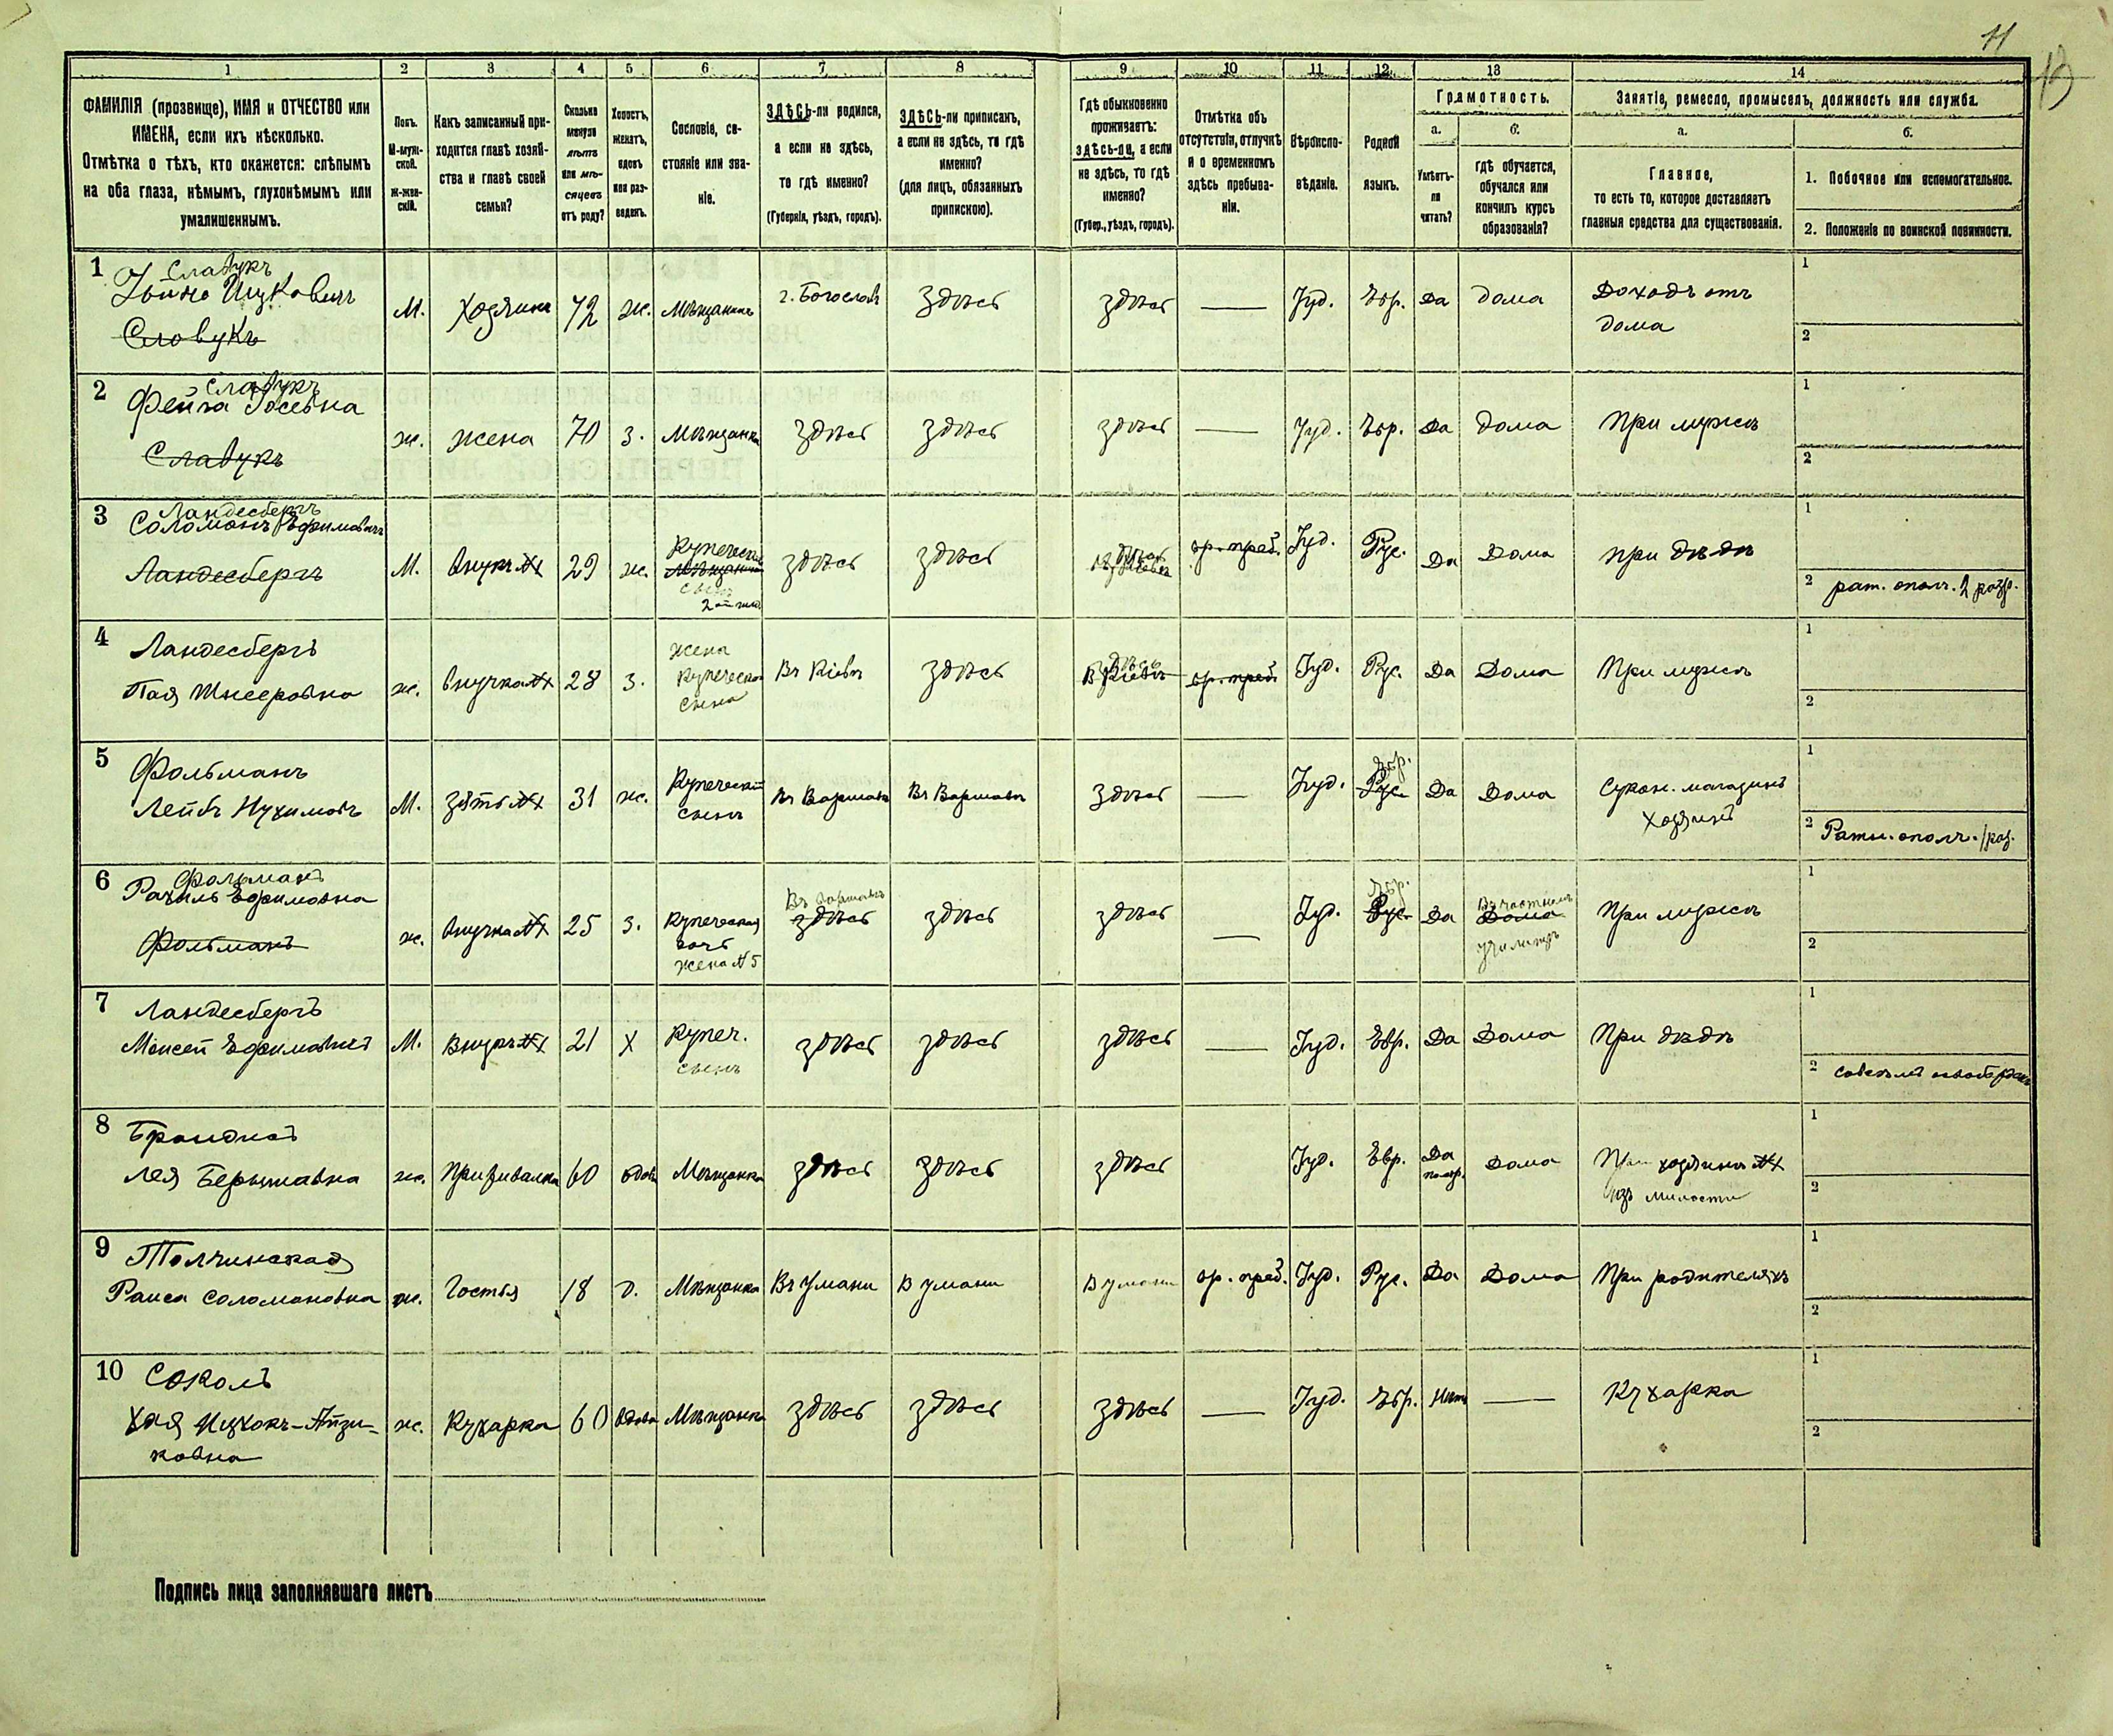 11
13
1
2
3
4
5
6
7
8
9
10
11
12
13
14
ФАМИЛІЯ (прозвище), ИМЯ и ОТЧЕСТВО или
ИМЕНА, если ихъ нѣсколько.
Отмѣтка о тѣхъ, кто окажется: слѣпымъ
на оба глаза, нѣмымъ, глухонѣмымъ или
умалишеннымъ.
Полъ.
М-муж-
ской.
Ж-жен-
скій.
Какъ записанный при-
ходится главѣ хозяй-
ства и главѣ своей
семьи?
Сколько
минуло
лѣтъ
или мѣ-
сяцевъ
отъ роду?
Холостъ,
женатъ,
вдовъ
или раз-
веденъ.
Сословіе, со-
стояніе или зва-
ніе.
ЗДѢСЬ-ли родился,
а если не здѣсь,
то гдѣ именно?
(Губернія, уѣздъ, городъ).
ЗДѢСЬ-ли приписанъ,
а если не здѣсь, то гдѣ
именно?
(для лицъ, обязанныхъ
припискою).
Гдѣ обыкновенно
проживаетъ:
здѣсь-ли, а если
не здѣсь, то гдѣ
именно?
(Губер., уѣздъ, городъ).
Отмѣтка объ
отсутствіи, отлучкѣ
и о временномъ
здѣсь пребыва-
ніи.
Вѣроиспо-
вѣданіе.
Родной
языкъ.
Грамотность.
а.
Умѣетъ-
ли
читать?
б.
Гдѣ обучается,
обучался или
кончилъ курсъ
образованія?
Занятіе, ремесло, промыселъ, должность или служба.
а.
Главное,
то есть то, которое доставляетъ
главныя средства для существованія.
б.
1. Побочное или вспомогательное.
2. Положеніе по воинской повинности.
1
Славукъ
Ицковичъ
Словукъ
М. Хозяинъ 72 ж. Мѣщанинъ г. Богослав здѣсь здѣсь — Іуд. Евр. Да дома Доходъ отъ
дома
1
2
2
Славукъ
Фейга Іосевна
Славукъ
ж. жена 70 з. Мѣщанка здѣсь здѣсь здѣсь — Іуд. Евр. Да дома При мужѣ
1
2
3
Ландесбергъ
Соломонъ Ефимовичъ
Ландесбергъ
М. Внукъ №1 29 ж. Купеческій
мѣщанинъ
сынъ
2ой гил.
здѣсь здѣсь здѣсь вр. преб. Іуд. Рус. Да Дома при дѣдѣ
1
2 рат. ополч. 2 разр.
4
Ландесбергъ
ж. внучка №1 28 з. жена
купеческаго
сына
Въ Кіевѣ здѣсь здѣсь
В Кіевѣ вр. преб. Іуд. Рус. Да Дома При мужѣ
1
2
5
Фольманъ
Лейбъ Нухимовъ
М. Зять №1 31 ж. Купеческій
сынъ
Въ Варшавѣ Въ Варшавѣ здѣсь — Іуд. Евр.
Рус. Да Дома Сукон. магазинъ
хозяинъ
1
2 Ратн. ополч. 1 раз.
6
Фольманъ
Рахиль Ефимовна
Фольманъ
ж. Внучка №1 25 з. Купеческая
дочь
жена №5
Въ Варшавѣ
здѣсь здѣсь здѣсь — Іуд. Евр.
Рус. Да Въ частномъ
Дома
училищѣ
При мужѣ
1
2
7
Ландесбергъ
Моисей Ефимовичъ
М. Внукъ №1 21 Х Купеч.
сынъ
здѣсь здѣсь здѣсь — Іуд. Евр. Да Дома При дѣдѣ
1
2
8
Лея Берковна
ж. 60 вдова Мѣщанка здѣсь здѣсь здѣсь Іуд. Евр. Да Дома При хозяинѣ №1
изъ милости
1
2
9
Толчинская
Раиса Соломоновна
ж. Гостья 18 д. Мѣщанка Въ Умани В Умани В Умани вр. преб. Іуд. Рус. Да Дома При родителяхъ
1
2
10
Соколъ
Хая Ицхокъ-Айзи-
ковна
ж. Кухарка 60 вдова Мѣщанка здѣсь здѣсь здѣсь — Іуд. Евр. Нѣтъ — Кухарка
1
2
Подпись лица заполнявшаго листъ